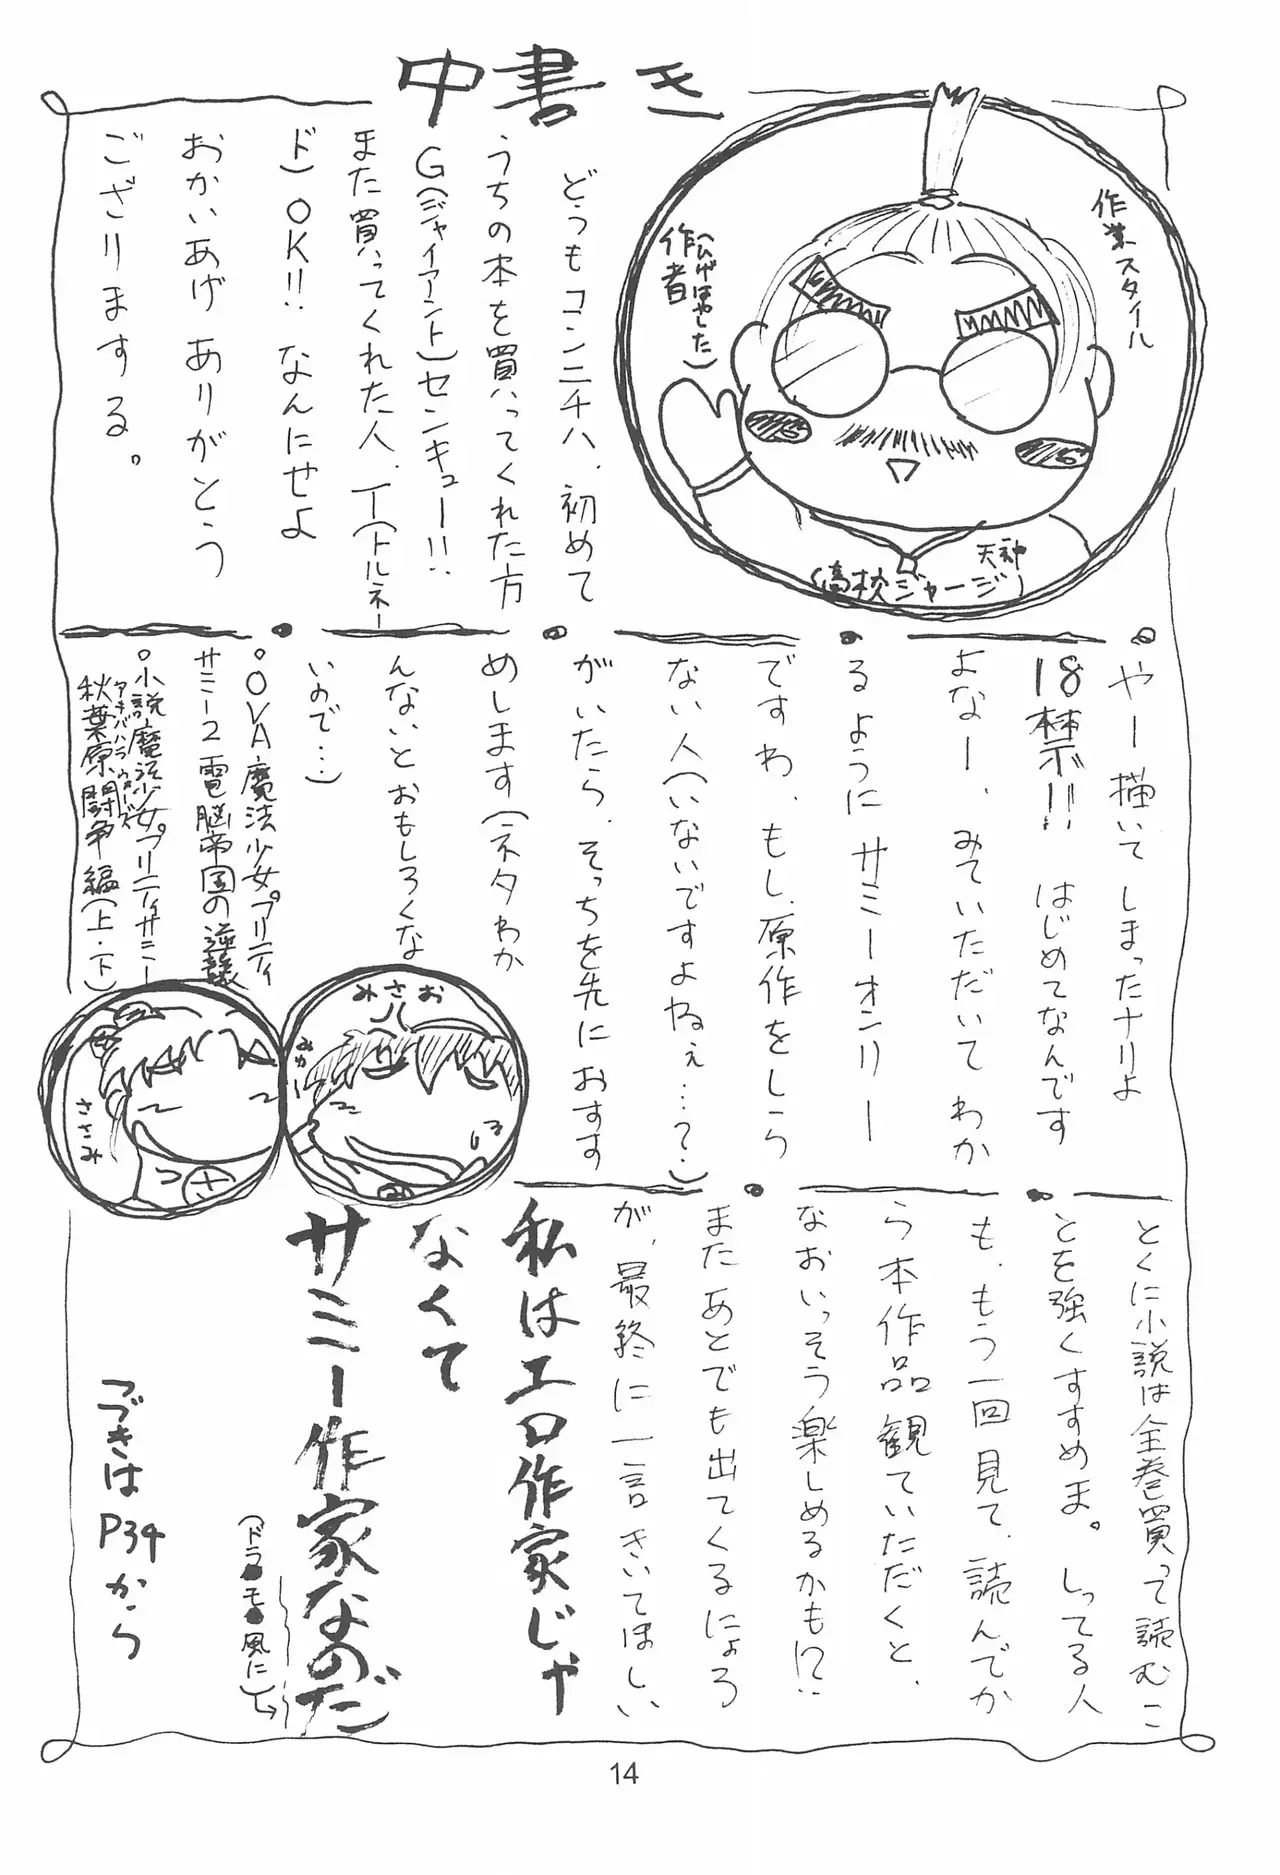 中書き
どうもコンニチハ、初めて
うちの本を買ってくれた方
G(ジャイアント)センキュー!!
また買ってくれた人、T(トルネー
ド)OK!! なんにせよ
おかいあげ ありがとう
ござりまする。
作業スタイル
作者
(ひげはやした)
天神
(高校ジャージ)
やー描いてしまったナリよ
18禁!! はじめてなんです
よなー、みていただいてわか
るようにサミーオンリー
ですわ、もし、原作をしら
ない人(いないですよねぇ…?)
がいたら、そっちを先におすす
めします(ネタわか
んないとおもしろくな
いので…)
・OVA魔法少女プリティ
サミー2 電脳帝国の逆襲
・小説魔法少女プリティサミー
アキハバラウォーズ
秋葉原闘争編(上・下)
みさお
ささみ
とくに小説は全巻買って読むこ
とを強くすすめま。しってる人
も、もう一回見て、読んでか
ら本作品観ていただくと、
なおいっそう楽しめるかも!?
またあとでも出てくるにょろ
が、最終に一言きいてほしい
私はエロ作家じゃ
なくて
サミー作家なのだ
(ドラ●モ●風に)
つづきは
P34から
14